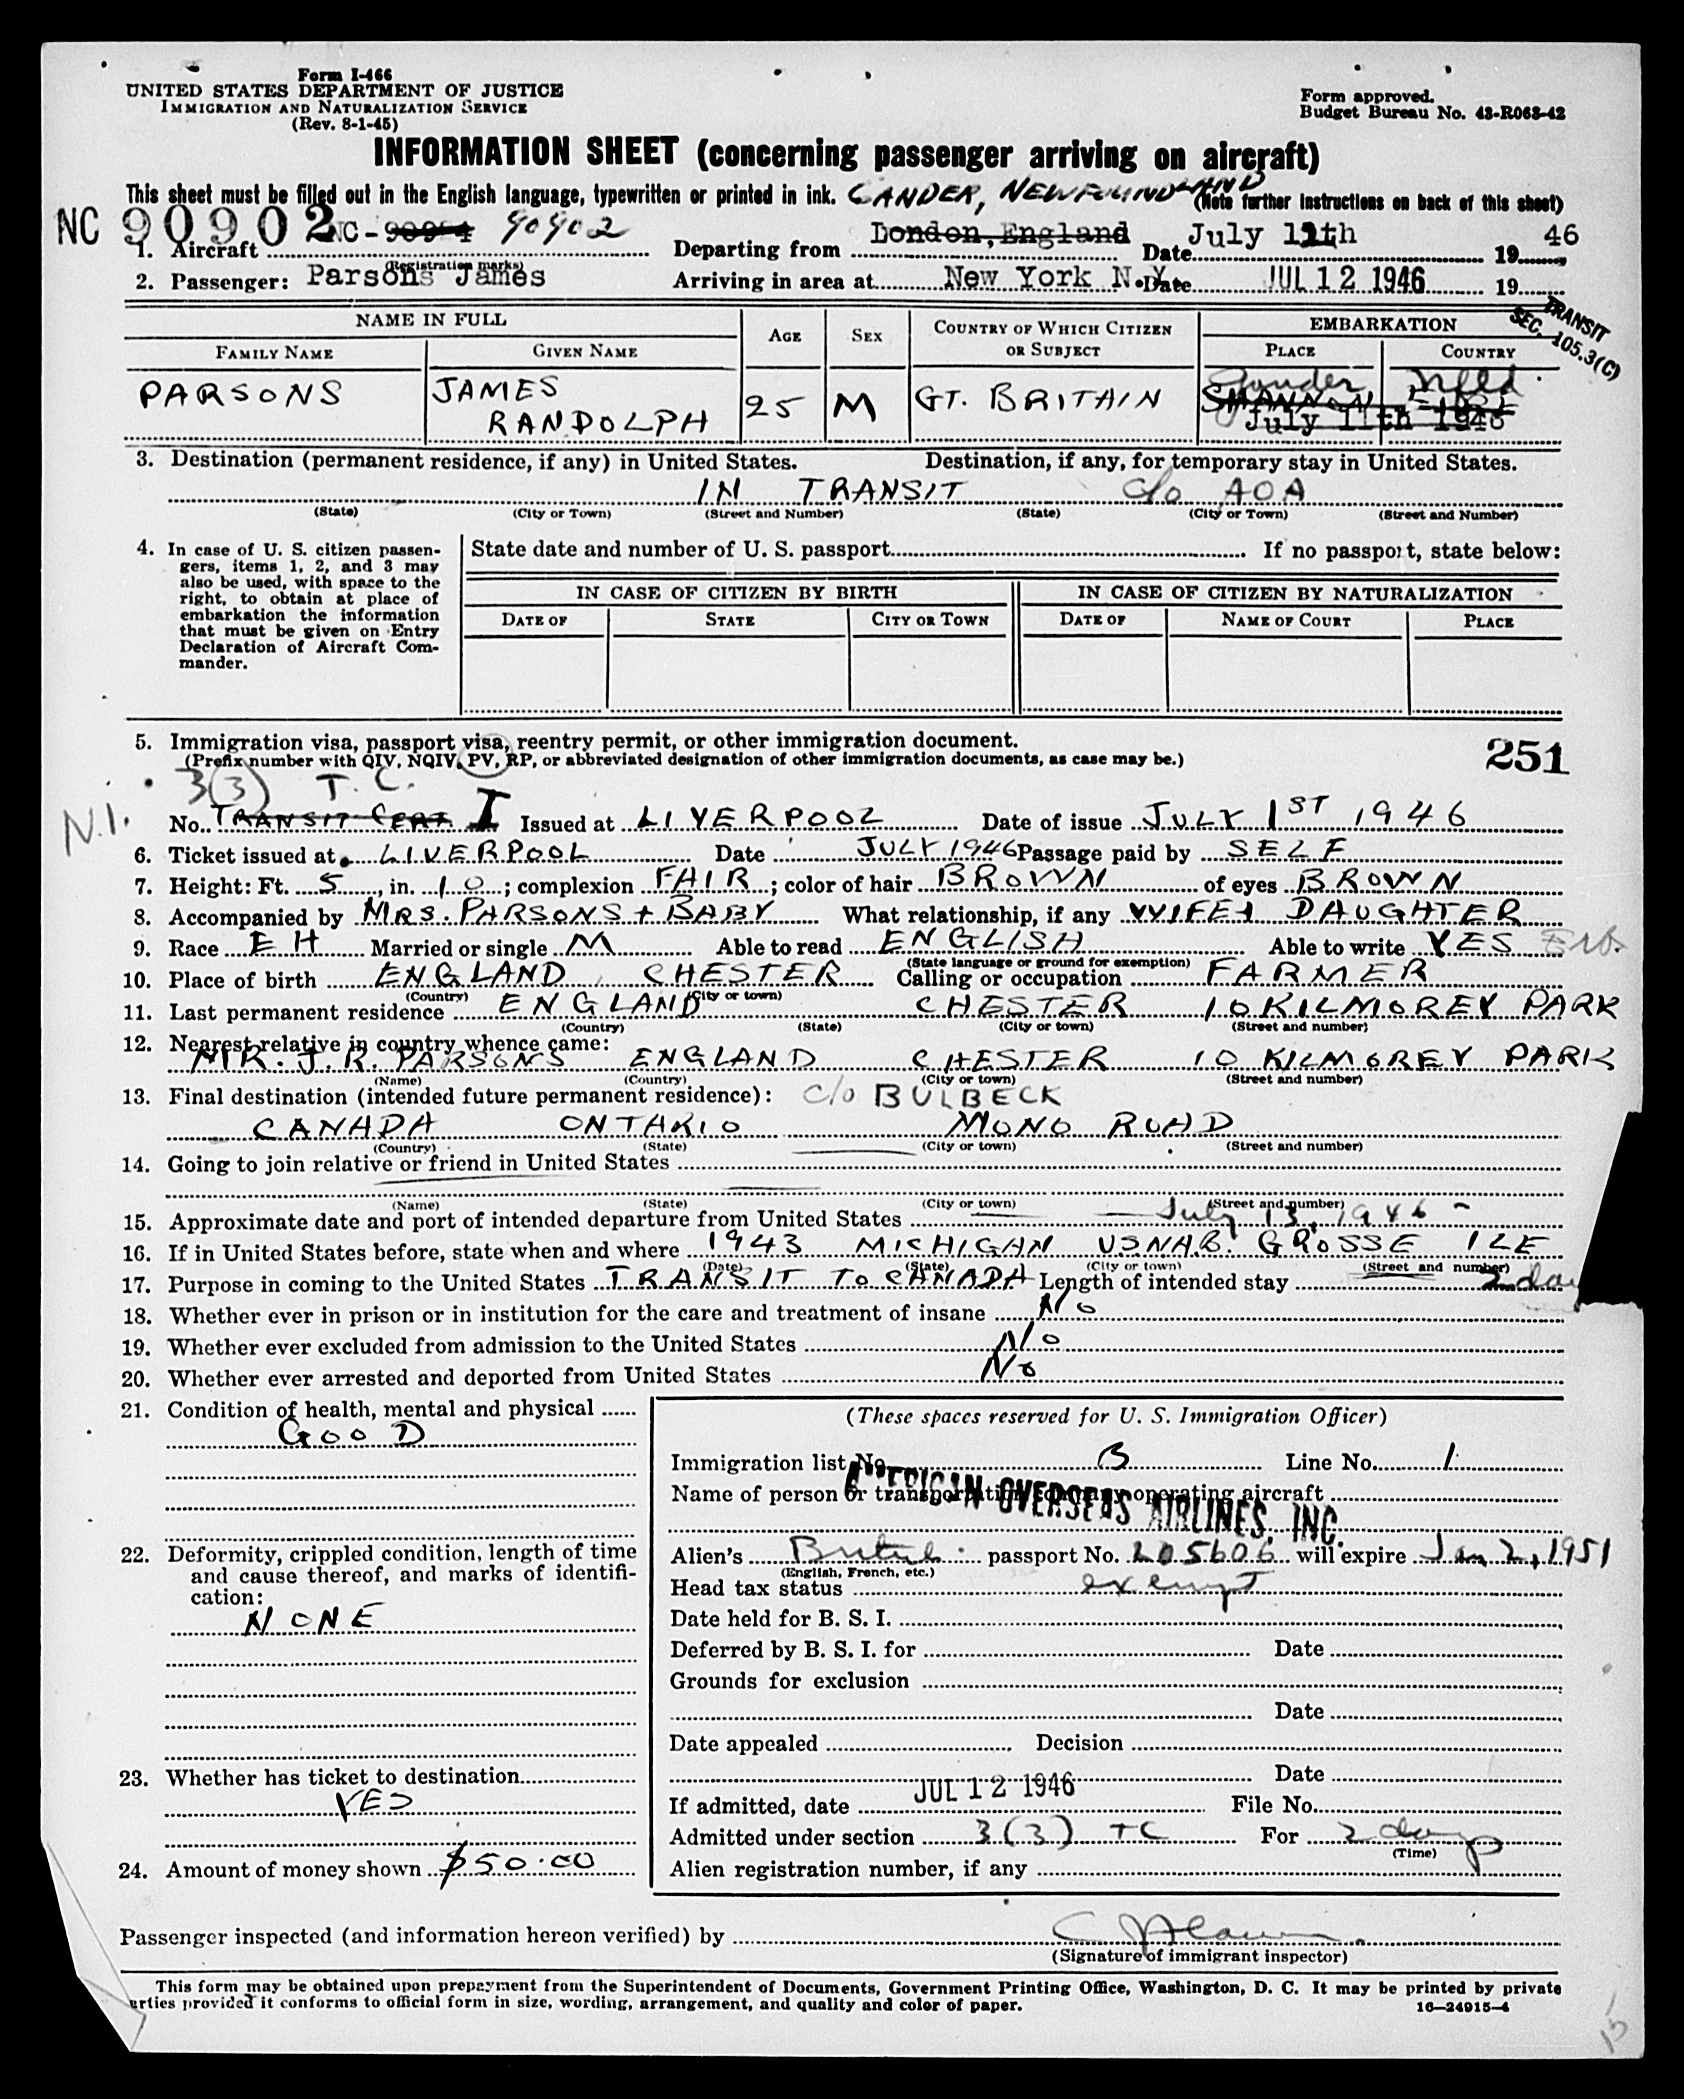 Form I-466
UNITED STATES DEPARTMENT OF JUSTICE
IMMIGRATION AND NATURALIZATION SERVICE
(Rev. 8-1-45)
Form approved.
Budget Bureau No. 43-R068-42
INFORMATION SHEET (concerning passenger arriving on aircraft)
This sheet must be filled out in the English language, typewritten or printed in ink. GANDER, NEWFOUNDLAND (Note further instructions on back of this sheet)
NC 90902 NC- 90902
1. Aircraft (Registration marks) Departing from London, England Date July 11th 19 46
2. Passenger: Parsons James Arriving in area at New York N.Y. Date JUL 12 1946 19
TRANSIT
SEC. 105.3(C)
NAME IN FULL AGE SEX COUNTRY OF WHICH CITIZEN OR SUBJECT EMBARKATION
FAMILY NAME GIVEN NAME PLACE COUNTRY
PARSONS JAMES RANDOLPH 25 M GT. BRITAIN Gander Nfld
SHANNON EIRE
July 11th 1946
3. Destination (permanent residence, if any) in United States. Destination, if any, for temporary stay in United States.
IN TRANSIT c/o AOA
(State) (City or Town) (Street and Number) (State) (City or Town) (Street and Number)
4. In case of U. S. citizen passengers, items 1, 2, and 3 may also be used, with space to the right, to obtain at place of embarkation the information that must be given on Entry Declaration of Aircraft Commander.
State date and number of U. S. passport If no passport, state below:
IN CASE OF CITIZEN BY BIRTH IN CASE OF CITIZEN BY NATURALIZATION
DATE OF STATE CITY OR TOWN DATE OF NAME OF COURT PLACE
5. Immigration visa, passport visa, reentry permit, or other immigration document.
(Prefix number with QIV, NQIV, PV, RP, or abbreviated designation of other immigration documents, as case may be.)
251
3(3) T.C.
N.I.
No. TRANSIT CERT. I Issued at LIVERPOOL Date of issue JULY 1ST 1946
6. Ticket issued at LIVERPOOL Date JULY 1946 Passage paid by SELF
7. Height: Ft. 5, in. 10; complexion FAIR; color of hair BROWN of eyes BROWN
8. Accompanied by MRS. PARSONS + BABY What relationship, if any WIFE + DAUGHTER
9. Race EH Married or single M Able to read ENGLISH Able to write YES
(State language or ground for exemption)
10. Place of birth ENGLAND, CHESTER Calling or occupation FARMER
(Country) (City or town)
11. Last permanent residence ENGLAND CHESTER 10 KILMOREY PARK
(Country) (State) (City or town) (Street and number)
12. Nearest relative in country whence came:
MR. J. R. PARSONS ENGLAND CHESTER 10 KILMOREY PARK
(Name) (Country) (City or town) (Street and number)
13. Final destination (intended future permanent residence): c/o BULBECK
CANADA ONTARIO MONO ROAD
(Country) (State) (City or town) (Street and number)
14. Going to join relative or friend in United States
(Name) (State) (City or town) (Street and number)
15. Approximate date and port of intended departure from United States July 13, 1946 -
16. If in United States before, state when and where 1943 MICHIGAN USNAB. GROSSE ILE
(Date) (State) (City or town) (Street and number)
17. Purpose in coming to the United States TRANSIT TO CANADA Length of intended stay 2 day
18. Whether ever in prison or in institution for the care and treatment of insane No
19. Whether ever excluded from admission to the United States No
20. Whether ever arrested and deported from United States No
21. Condition of health, mental and physical
GOOD
22. Deformity, crippled condition, length of time and cause thereof, and marks of identification:
NONE
23. Whether has ticket to destination
YES
24. Amount of money shown $50.00
(These spaces reserved for U. S. Immigration Officer)
Immigration list No. B Line No. 1
Name of person or transportation company operating aircraft
AMERICAN OVERSEAS AIRLINES, INC.
Alien's British passport No. 205606 will expire Jan 2, 1951
(English, French, etc.)
Head tax status exempt
Date held for B. S. I.
Deferred by B. S. I. for Date
Grounds for exclusion
Date
Date appealed Decision
Date
If admitted, date JUL 12 1946 File No.
Admitted under section 3(3) TC For 2 days
(Time)
Alien registration number, if any
Passenger inspected (and information hereon verified) by
(Signature of immigrant inspector)
This form may be obtained upon prepayment from the Superintendent of Documents, Government Printing Office, Washington, D. C. It may be printed by private
arties provided it conforms to official form in size, wording, arrangement, and quality and color of paper.
16—24915-4
15